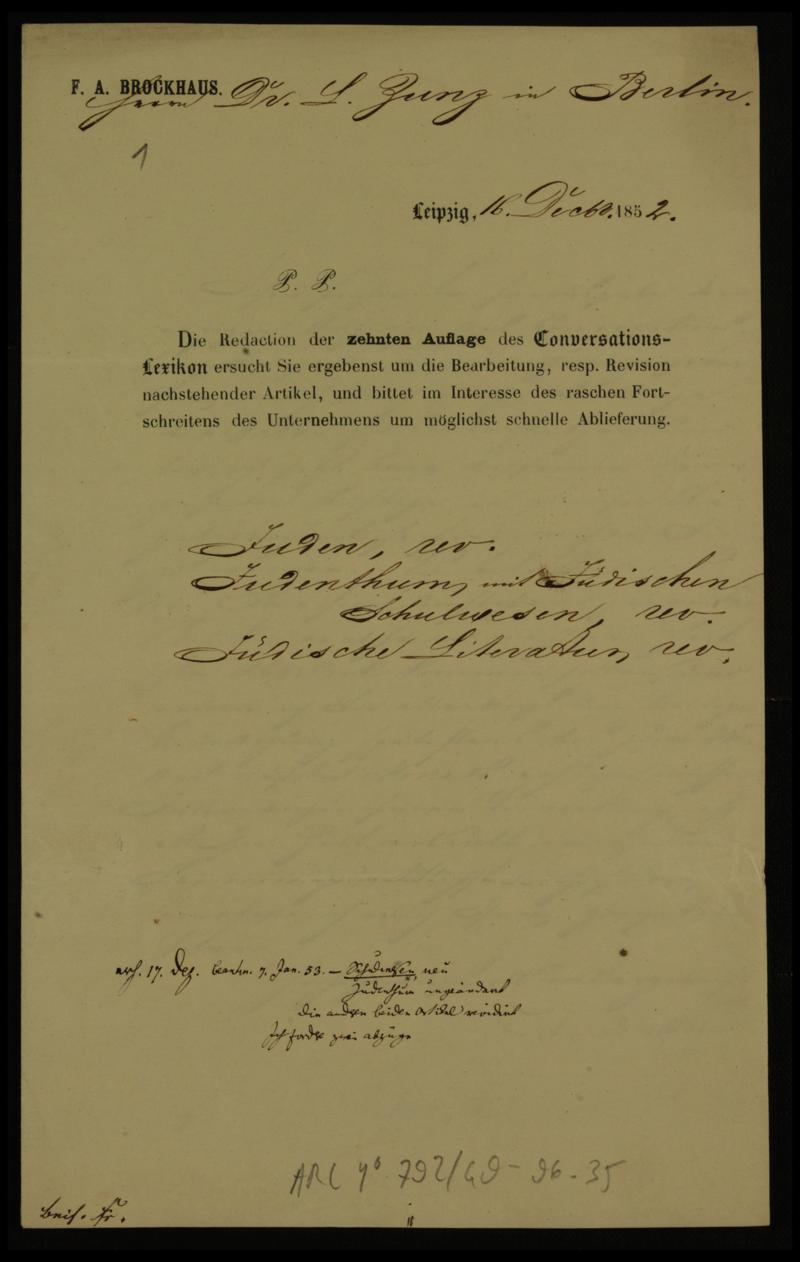 F. A. BROCKHAUS.
Herrn Dr. L. Zunz in Berlin.
1
Leipzig, 16. Decbr. 1852.
P. P.
Die Redaction der zehnten Auflage des Conversations-
Lexikon ersucht Sie ergebenst um die Bearbeitung, resp. Revision
nachstehender Artikel, und bittet im Interesse des raschen Fort-
schreitens des Unternehmens um möglichst schnelle Ablieferung.
Juden, rev.
Judenthum, mit Jüdischen
Schulwesen, rev.
Jüdische Literatur, rev.
17. Dez. beantw. 7. Jan. 53. — neu
Judenthum umgeändert
die andern beiden Artikel revidirt
Ich fordre zwei Abzüge
ARC 4° 792/